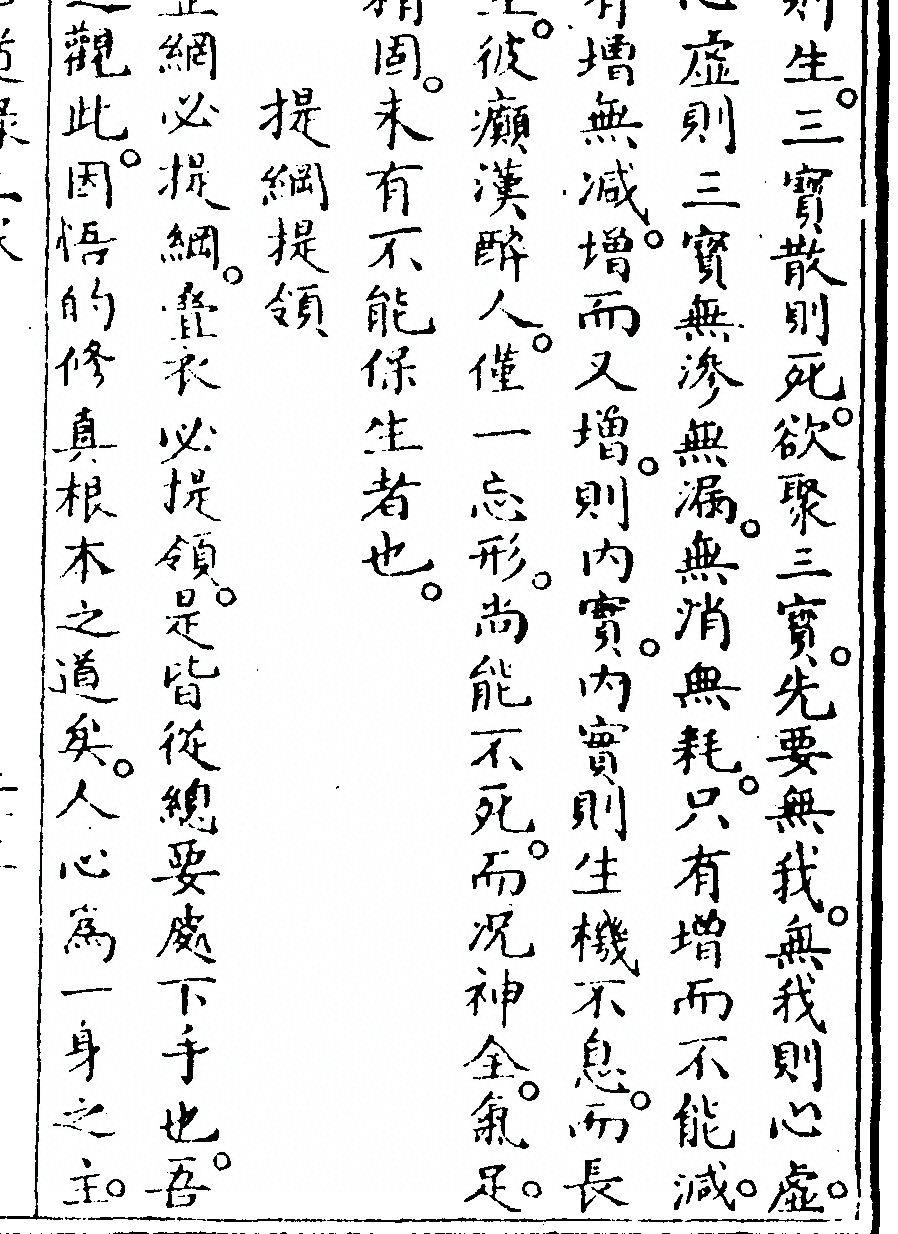 則生。三寳散則死。欲聚三寳。先要無我。無我則心虛。
心虛則三寳無滲無漏。無消無耗。只有增而不能減。
有增無减。增而又增。則内實。内實則生機不息。而長
生。彼癲漢醉人。僅一忘形。尚能不死。而况神全。氣足。
精固。未有不能保生者也。
提綱提領
整網必提綱。疊衣必提領。是皆從總要處下手也。吾
觀此。因悟的修真根本之道矣。人心為一身之主。